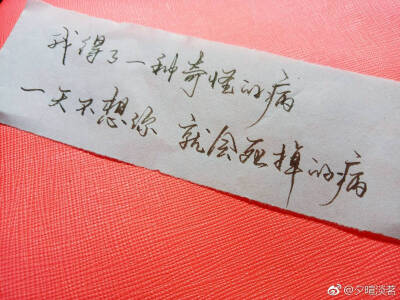 我得了一种奇怪的病
一天不想你 就会死掉的病
@夕暗淡茗